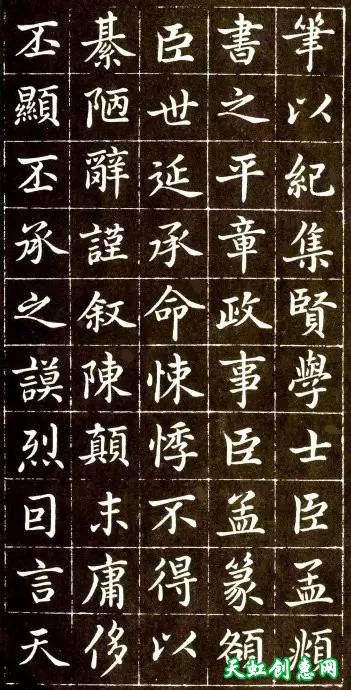 筆以紀集賢學士臣孟頫
書之平章政事臣孟篆額
臣世延承命悚悸不得以
綦陋辭謹叙陳顛末庸侈
丕顯丕承之謨烈囙言天
天虹创惠网